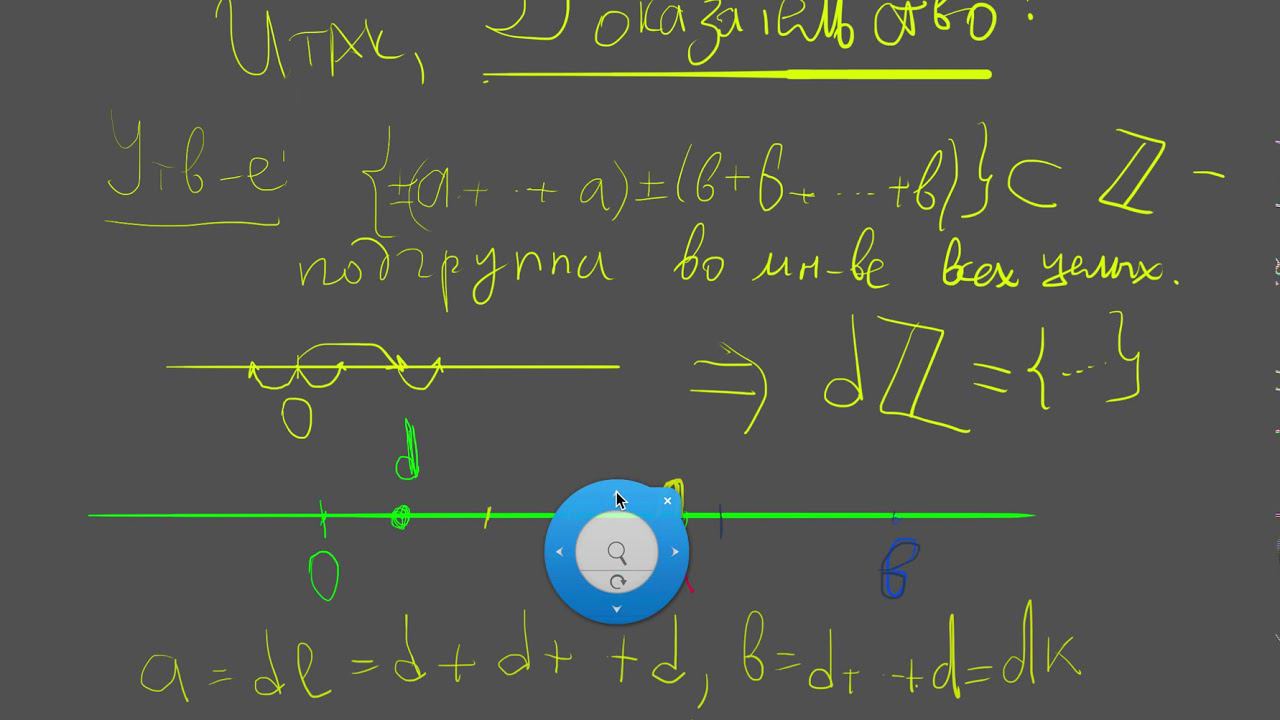 Итак, Доказательство:
Утв-е: {±(a+··+a)±(в+в+···+в)}⊂ ℤ –
подгруппа во мн-ве всех целых.
0
⇒ dℤ = {···}
d
0
в
a = dl = d + d+ +d, в = d+ ·+d = dк